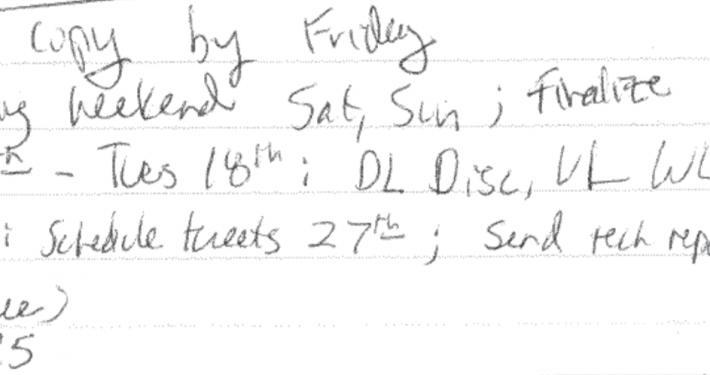 copy by Friday
weekend Sat, Sun ; Finalize
- Tues 18th ; DL Disc, UL
: Schedule tweets 27th ; Send tech rep
15